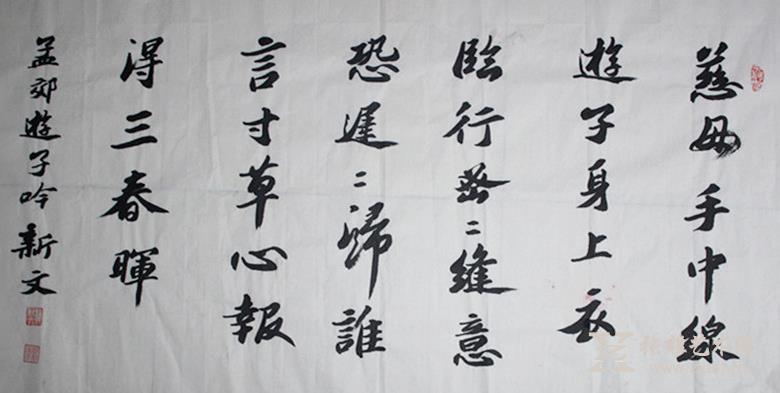 慈母手中線
遊子身上衣
臨行密〻縫意
恐遲〻歸誰
言寸草心報
得三春暉
孟郊遊子吟 新文